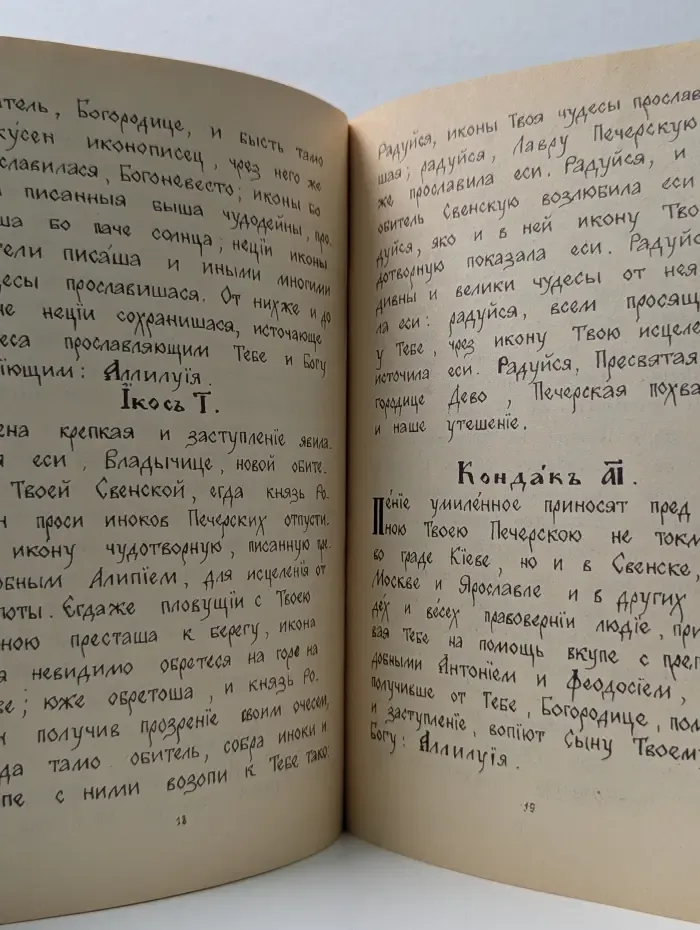 итель, Богородице, и бысть тамо
кусен иконописец, чрез него же
славилася, Богоневесто; иконы бо
писанныя быша чудодейны, про.
ша бо паче солнца; нецїи иконы
тели писа́ша и иными многими
десы прославишася. От нихже и до
не нецїи сохранишася, источающе
еса прославляющим Тебе и Богу
їющим: Аллилуїя.
Їкосъ Ї.
ена крепкая и заступленїе явила.
я еси, Владычице, новой обите.
Твоей Свенской, егда князь Ро.
н проси иноков Печерских отпусти.
икону чудотворную, писанную пре.
обным Алипїем, для исцеленїя от
поты. Єгдаже пловущїи с Твоею
ною престаша к берегу, икона
я невидимо обретеся на горе на
ве; юже обретоша, и князь Ро.
н получив прозренїе своим очесем,
да тамо обитель, собра иноки и
пе с ними возопи к Тебе тако:
18
Радуйся, иконы Твоя чудесы прослав
шая; радуйся, Лавру Печерскую
же прославила еси. Радуйся, и
обитель Свенскую возлюбила еси
дуйся, яко и в ней икону Тво
дотворную показала еси. Радуй
дивны и велики чудесы от нея
ла еси: радуйся, всем просящ
у Тебе, чрез икону Твою исцеле
источила еси. Радуйся, Пресвятая
городице Дево, Печерская похва
и наше утешенїе.
Конда́къ АІ.
Пенїе умиле́нное приносят пред
ною Твоею Печерскою не токм
во граде Кїеве, но и в Свенске,
Москве и Ярославле и в других
де́х и ве́сех правоверн​їи людїе, при
вая Тебе на помощь вкупе с преп
добными Антонїем и Феодосїем,
получивше от Тебе, Богородице, пом
и заступленїе, вопїют Сыну Твоем
Богу: Аллилуїя.
19